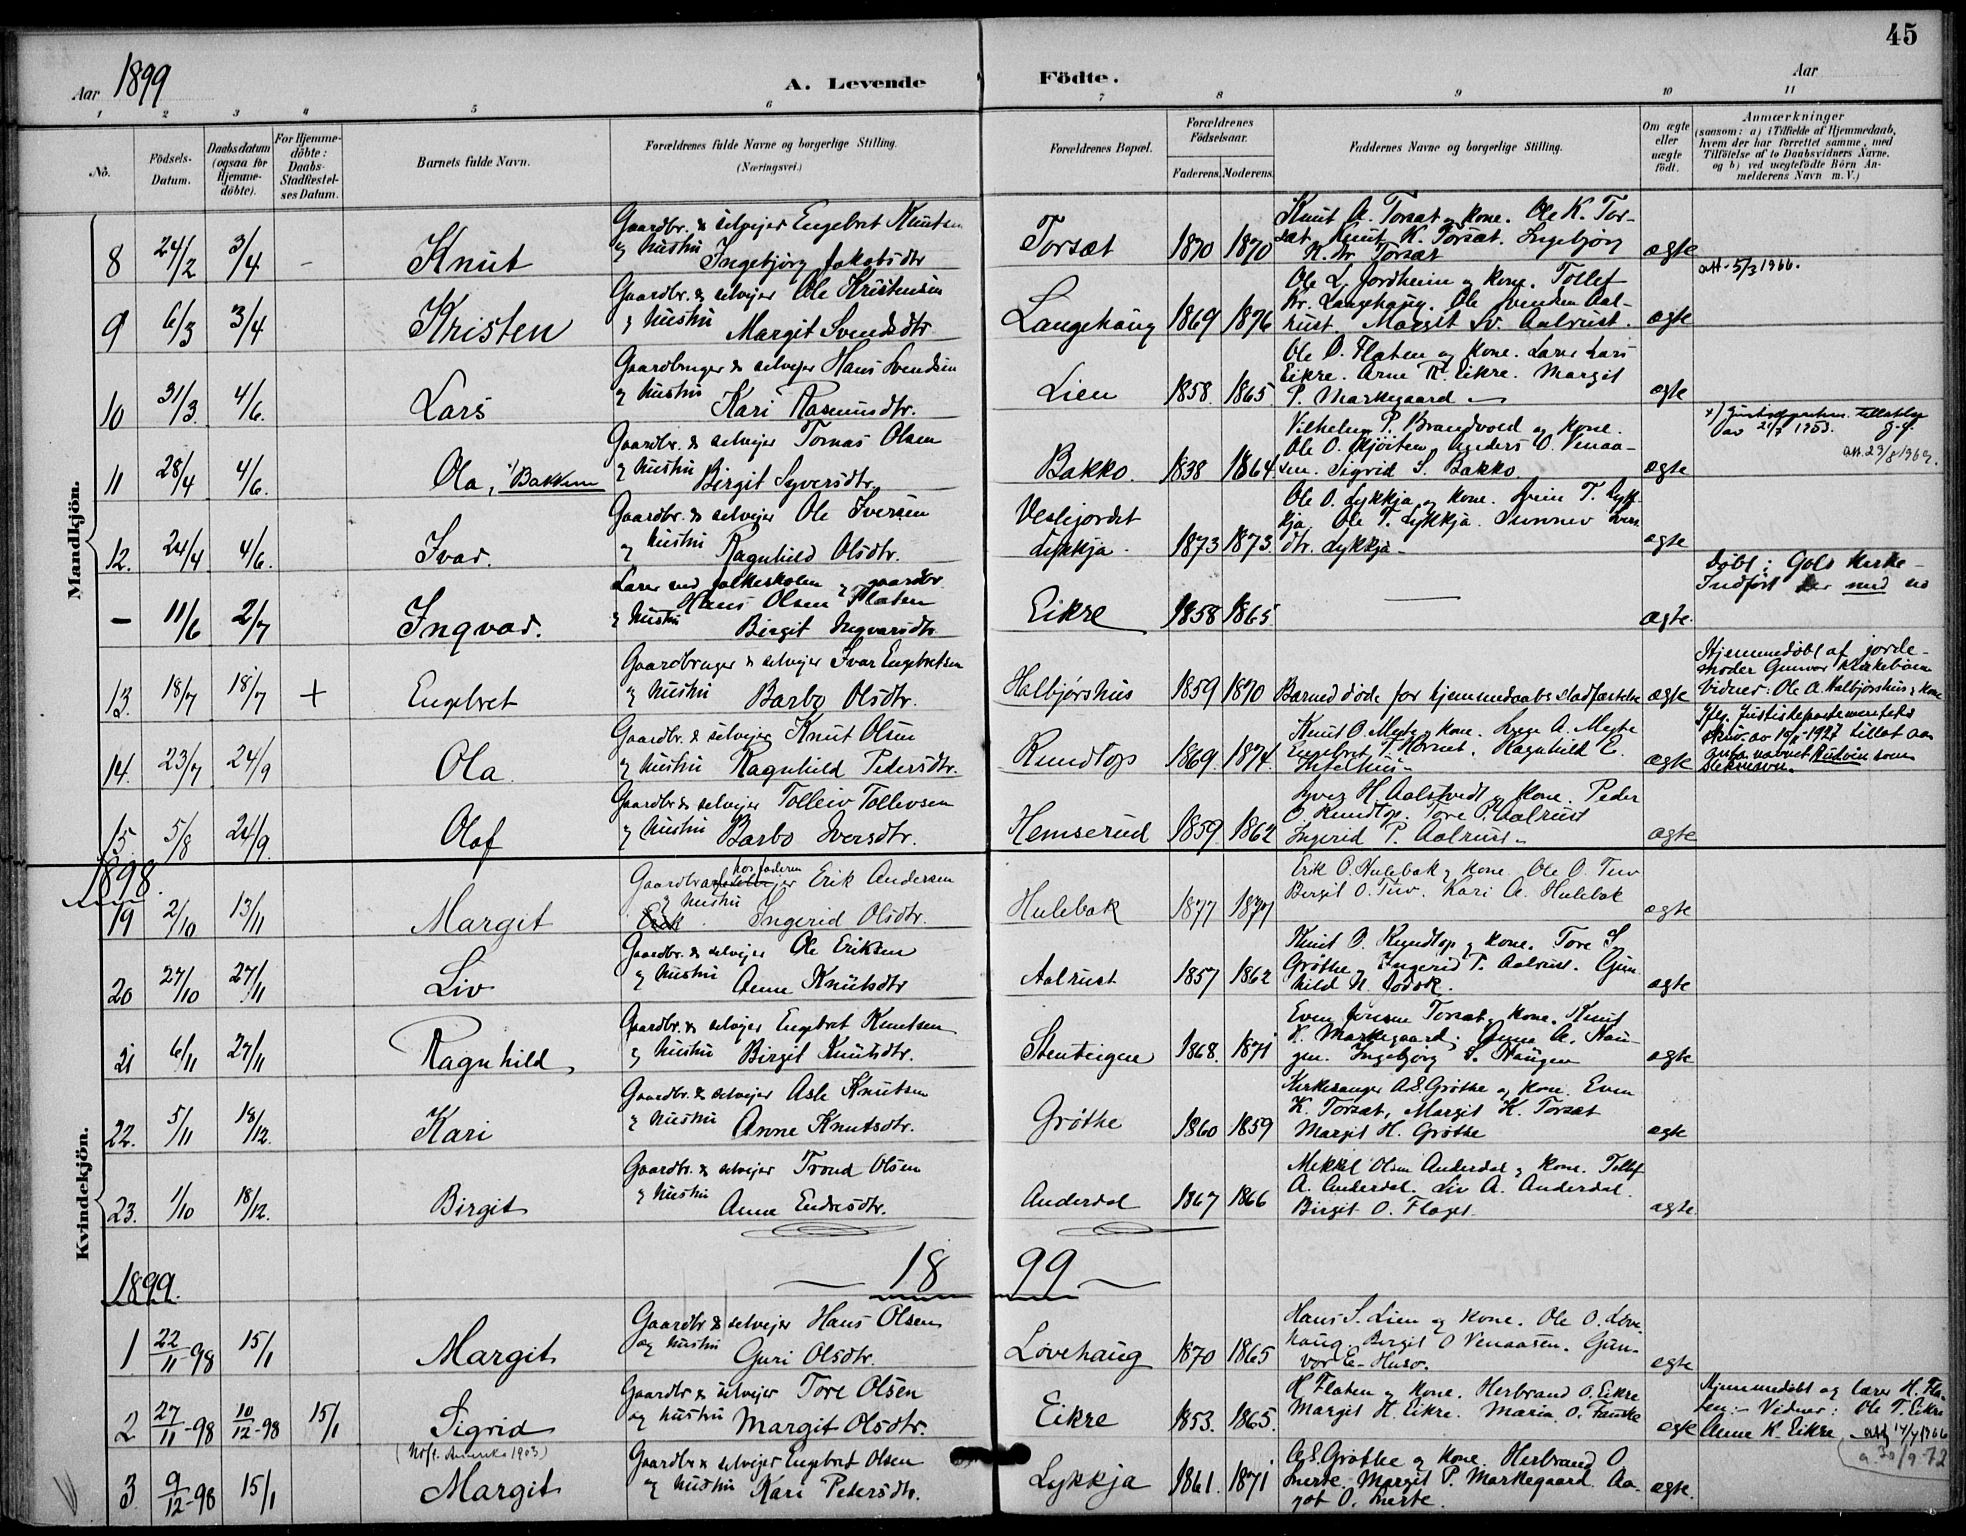 45
Aar 1899
A. Levende Födte.
Aar
1 2 3 4 5 6 7 8 9 10 11
No.
Födsels-Datum.
Daabsdatum (ogsaa for Hjemme-döbte).
For Hjemme-döbte: Daabs-Stadfæstel-ses Datum.
Barnets fulde Navn.
Forældrenes fulde Navne og borgerlige Stilling.
(Næringsvei.)
Forældrenes Bopæl.
Forældrenes Födselsaar.
Faderens. Moderens.
Faddernes Navne og borgerlige Stilling.
Om ægte eller uægte födt.
Anmærkninger
(saasom: a) i Tilfælde af Hjemmedaab,
hvem der har forrettet samme, med
Tilföielse af to Daabsvidners Navne,
og b) ved uægtefödte Börn An-
melderens Navn m. V.)
Mandkjön.
8 24/2 3/4 - Knut
Gaardbr. & selvejer Engebret Knutsen
og hustru Ingebjörg Jakobsdtr
Torsæt 1870 1870
Knut A. Torsæt og kone. Ole K. Tor-
sæt. Knut K. Torsæt. Ingebjörg
Torsæt
ægte
att. 5/3 1966.
9 6/3 3/4 Kristen
Gaardbr. & selvejer Ole Kristensen
og hustru Margit Svendsdtr
Langehaug 1869 1876
Ole L. Jordheim og kone. Tollef
Kr. Langehaug. Ole Svendsen Aal-
rust. Margit Sv. Aalrust.
ægte
10 31/3 4/6. Lars
Gaardbruger & selvejer Hans Svendsen
og hustru Kari Rasmusdtr.
Lien 1858. 1865.
Ole O. Flaten og kone. Lærer Lars
Eikre. Arne T. Eikre. Margit
P. Markegaard
ægte
11 28/4 4/6. Ola, x) Bakken
Gaardbr. & selvejer Tomas Olsen
og hustru Birgit Syversdtr.
Bakko. 1838 1864
Vilhelm P. Brandvold og kone.
Ole O. Anders O. Venaa-
sen. Sigrid S. Bakko.
ægte
x) tillatelse
av 21/7 1953.
att. 23/8 1969.
12. 24/4 4/6. Ivar.
Gaardbr. & selvejer Ole Iversen
og hustru Ragnhild Olsdtr.
Veslejordet
Lykkja. 1873 1873
Ole O. Lykkja og kone. Svein T. Lyk-
kja. Ole T. Lykkja. Sunnev Ivers
dtr. Lykkja
ægte
- 11/6 2/7 Ingvar.
Lærer ved folkeskolen og gaardbr.
Hans Olsen Flaten
og hustru Birgit Ingvarsdtr.
Eikre 1858 1865
ægte.
Döbt i Gols kirke -
Indfört der med no
13. 18/7 18/7 + Engebret
Gaardbruger & selvejer Ivar Engebretsen
og hustru Barbo Olsdtr.
Halbjørshus 1859 1870
Barnet döde for hjemmedaabs stadfæstelse
ægte
Hjemmedöbt af jorde-
moder Gunvor Kirkebøen
Vidner: Ole A. Halbjørshus & kone
14. 23/7 24/9 Ola
Gaardbr. & selvejer Knut Olsen
og hustru Ragnhild Pedersdtr.
Rundtop 1869. 1874.
Knut O. Mythe og kone. A. Mythe
Engebret T. Ragnhild E.
ægte
Ifg. Justisdepartementets
skriv. av 10/5-1927 tillat aa
anta navnet Rudvin som
slektsnavn.
15. 5/8 24/9. Olaf
Gaardbr. & selvejer Tolleiv Tollevsen
og hustru Barbo Iversdtr.
Hemserud 1859 1862
Syver H. Aalstvedt og kone. Peder
O. Rundtop. Tore P. Aalrust
Ingerid P. Aalrust.
ægte
1898.
19 2/10 13/11 Margit
hos faderen
Gaardbr Erik Andersen
og hustru
Ingerid Olsdtr.
Hulebak 1877 1877
Erik O. Hulebak og kone. Ole O. Tuv
Birgit O. Tuv. Kari A. Hulebak
ægte
Kvindekjön.
20 27/10 27/11 Liv
Gaardbr. & selvejer Ole Eriksen
og hustru Anne Knutsdtr
Aalrust 1857 1862
Knut O. Rundtop og kone. Tore S.
Grøthe og Ingerid T. Aalrust. Gun-
hild N.
ægte
21 6/11 27/11 Ragnhild
Gaardbr. & selvejer Engebret Knutsen
og hustru Birgit Knutsdtr.
Stenteigen 1868. 1871
Even Torsæt og kone. Knut
K. Markegaard. Anne A. Hau-
gen. Ingebjörg S. Haugen
ægte
22. 5/11 18/12. Kari
Gaardbr. & selvejer Asle Knutsen
og hustru Anne Knutsdtr.
Grøthe 1860 1859
Kirkesanger A. S. Grøthe og kone. Even
K. Torsæt, Margit K. Torsæt
Margit H. Grøthe
ægte
23. 1/10 18/12. Birgit
Gaardbr. & selvejer Trond Olsen
og hustru Anne Endresdtr.
Anderdal 1867 1866
Mekkel Olsen Anderdal og kone. Tollef
A. Anderdal. Liv A. Anderdal.
Birgit O. Flaget
ægte.
1899. 18 99
1 22/11-98 15/1 Margit
Gaardbr & selvejer Hans Olsen
og hustru Guri Olsdtr.
Løvehaug 1870 1865
Hans S. Lien og kone. Ole O. Løve-
haug. Birgit O Venaasen. Gun-
vor E. Huso.
ægte
2 27/11-98 10/12-98 15/1 Sigrid
Gaardbr & selvejer Tore Olsen
og hustru Margit Olsdtr.
Eikre 1853. 1865.
H Flaten og kone. Herbrand O. Eikre
Margit H. Eikre. Maria O. Fauske
ægte
Hjemmedöbt og lærer H. Fla-
ten. - Vidner: Ole T. Eikre
Anne K. Eikre att 14/4 1966
(Utfl. Amerika 1903)
3 9/12-98 15/1 Margit
Gaardbr & selvejer Engebret Olsen
og hustru Kari Pedersdtr.
Lykkja 1861. 1871
A. S. Grøthe og kone. Herbrand O
Snerte. Margit P. Markegaard. Aa-
got O. Snerte.
ægte.
a 30/9-72